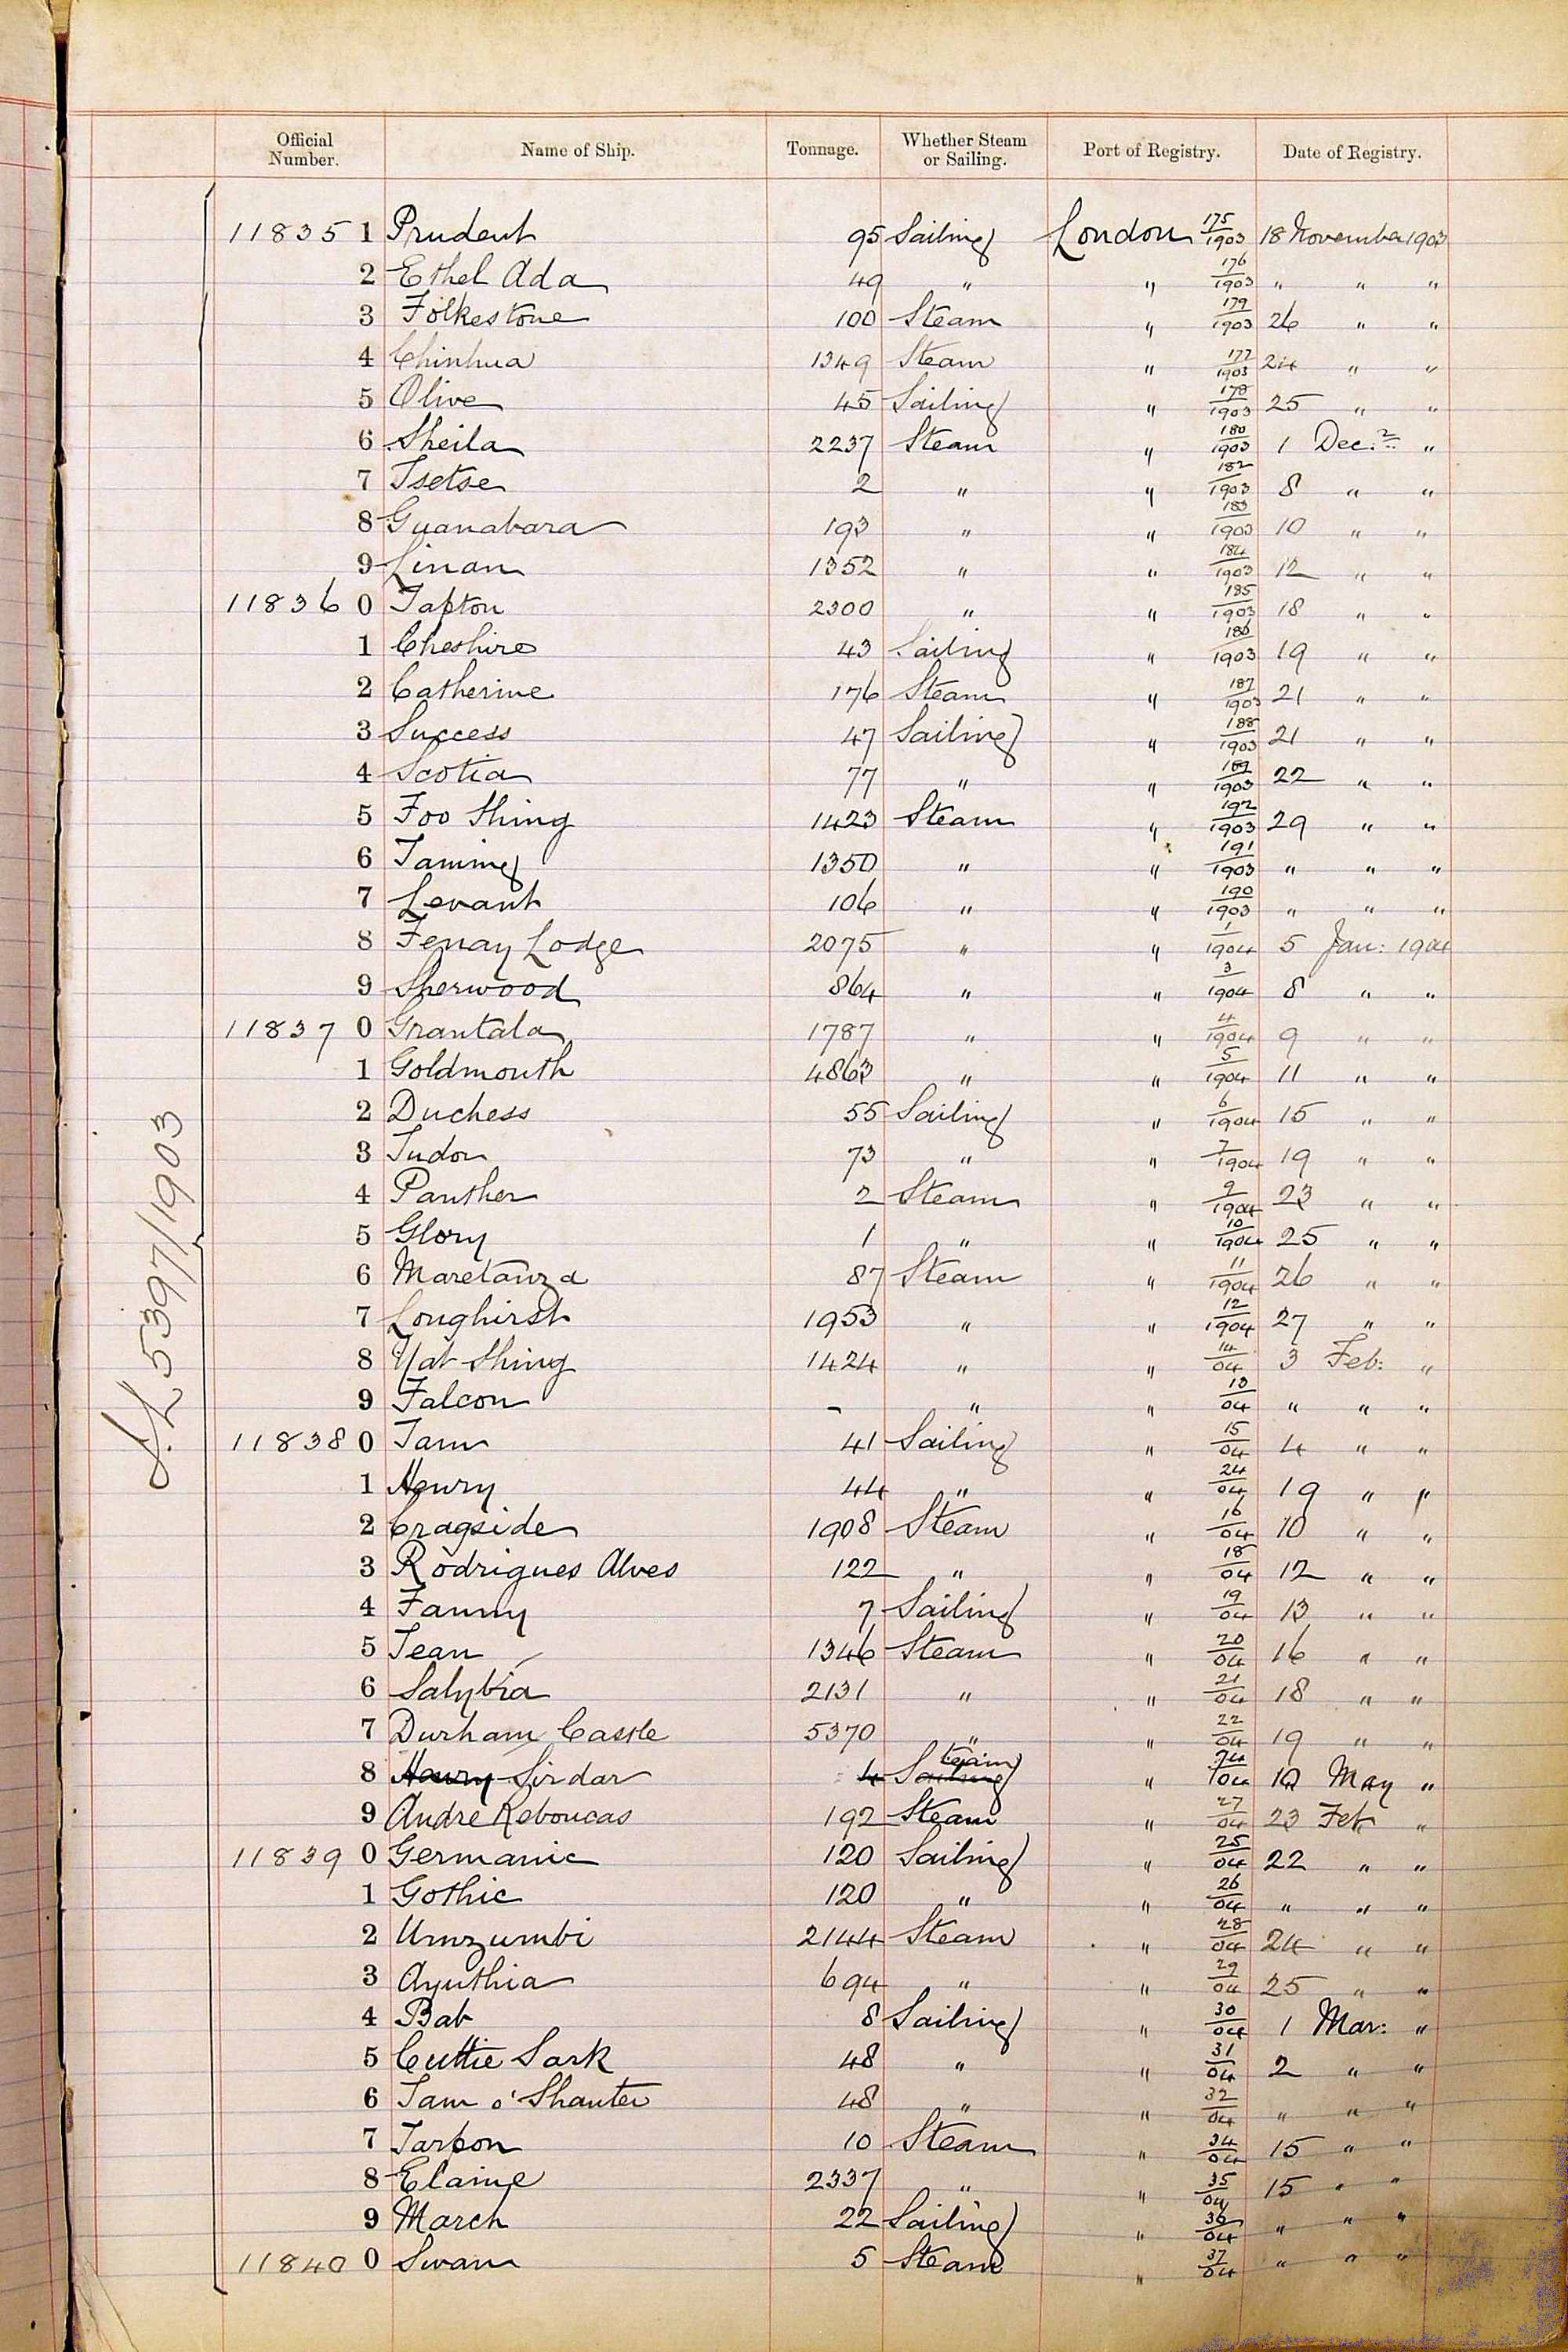 Official Number. Name of Ship. Tonnage. Whether Steam or Sailing. Port of Registry. Date of Registry.
11835 1 Prudent 95 Sailing London 175/1903 18 November 1903
2 Ethel Ada 49 " " 176/1903 " " "
3 Folkestone 100 Steam " 179/1903 26 " "
4 Chinhua 1349 Steam " 177/1903 24 " "
5 Olive 45 Sailing " 178/1903 25 " "
6 Sheila 2237 Steam " 180/1903 1 Dec. "
7 Tsetse 2 " " 182/1903 8 " "
8 Guanabara 193 " " 183/1903 10 " "
9 Linan 1352 " " 184/1903 12 " "
11836 0 Tapton 2300 " " 185/1903 18 " "
1 Cheshire 43 Sailing " 186/1903 19 " "
2 Catherine 176 Steam " 187/1903 21 " "
3 Success 47 Sailing " 188/1903 21 " "
4 Scotia 77 " " 189/1903 22 " "
5 Foo Shing 1423 Steam " 192/1903 29 " "
6 Taming 1350 " " 191/1903 " " "
7 Levant 106 " " 190/1903 " " "
8 Fenay Lodge 2075 " " 1/1904 5 Jan: 1904
9 Sherwood 864 " " 3/1904 8 " "
11837 0 Grantala 1787 " " 4/1904 9 " "
1 Goldmouth 4863 " " 5/1904 11 " "
2 Duchess 55 Sailing " 6/1904 15 " "
3 Tudor 73 " " 7/1904 19 " "
4 Panther 2 Steam " 9/1904 23 " "
5 Glory 1 " " 10/1904 25 " "
6 Maretanza 87 Steam " 11/1904 26 " "
7 Longhirst 1953 " " 12/1904 27 " "
8 Yat Shing 1424 " " 14/04 3 Feb: "
9 Falcon - " " 13/04 " " "
11838 0 Tam 41 Sailing " 15/04 4 " "
1 Henry 44 " " 24/04 19 " "
2 Cragside 1908 Steam " 16/04 10 " "
3 Rodrigues Alves 122 " " 18/04 12 " "
4 Fanny 7 Sailing " 19/04 13 " "
5 Tean 1346 Steam " 20/04 16 " "
6 Salybia 2131 " " 21/04 18 " "
7 Durham Castle 5370 " " 22/04 19 " "
8 Henry Sirdar 4 Sailing team " 74/04 May "
9 André Reboucas 192 Steam " 27/04 23 Feb "
11839 0 Germanic 120 Sailing " 25/04 22 " "
1 Gothic 120 " " 26/04 " " "
2 Umzumbi 2144 Steam " 28/04 24 " "
3 Ayuthia 694 " " 29/04 25 " "
4 Bab 8 Sailing " 30/04 1 Mar: "
5 Cuttie Sark 48 " " 31/04 2 " "
6 Tam o' Shanter 48 " " 32/04 " " "
7 Tarpon 10 Steam " 34/04 15 " "
8 Elaine 2337 " " 35/04 15 " "
9 March 22 Sailing " 36/04 " " "
11840 0 Swan 5 Steam " 37/04 " " "
5397/1903